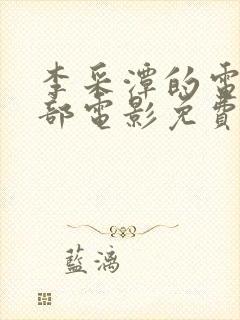 李采潭的電
部電影免費
藍漓